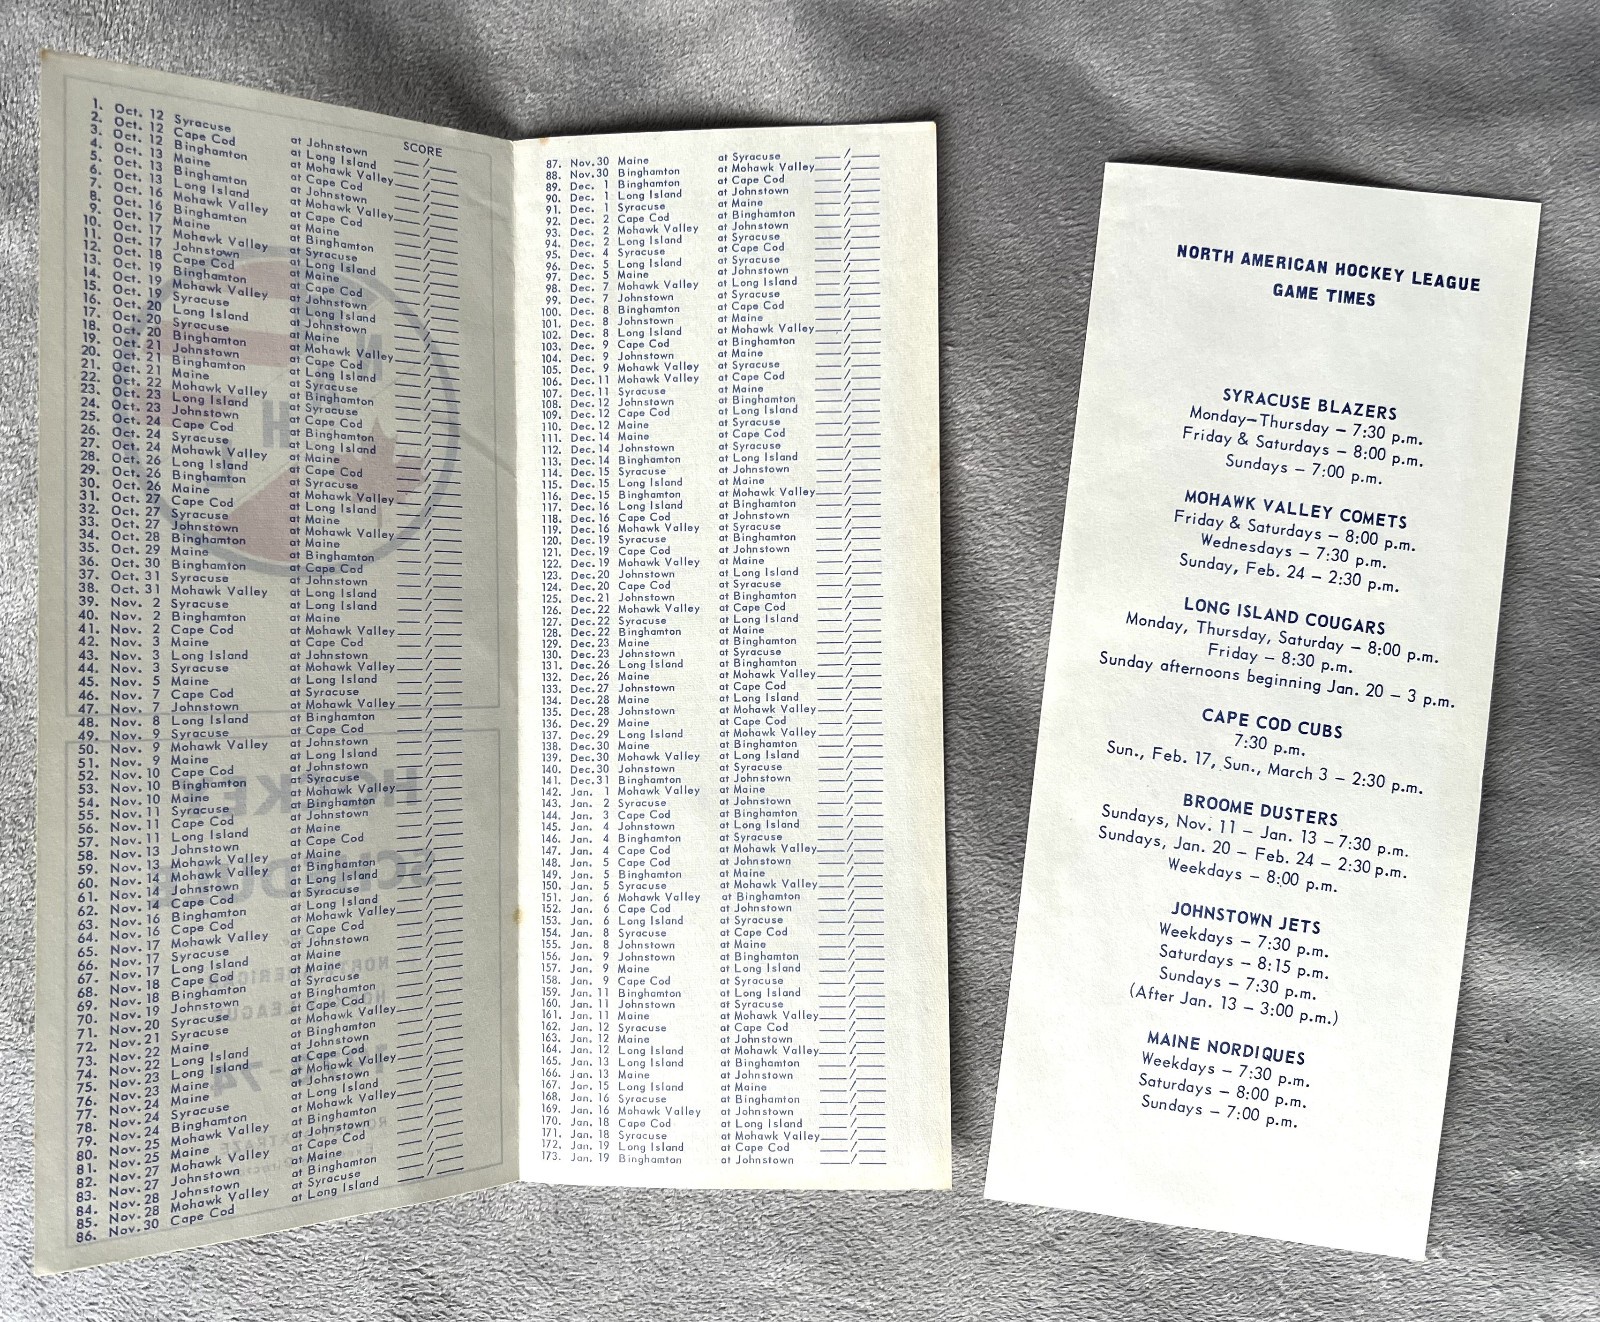 SCORE
1. Oct. 12 Syracuse at Johnstown
2. Oct. 12 Cape Cod at Long Island
3. Oct. 12 Binghamton at Mohawk Valley
4. Oct. 13 Maine at Cape Cod
5. Oct. 13 Binghamton at Johnstown
6. Oct. 13 Long Island at Mohawk Valley
7. Oct. 16 Mohawk Valley at Cape Cod
8. Oct. 16 Binghamton at Maine
9. Oct. 17 Maine at Binghamton
10. Oct. 17 Mohawk Valley at Syracuse
11. Oct. 17 Johnstown at Long Island
12. Oct. 18 Cape Cod at Maine
13. Oct. 19 Binghamton at Cape Cod
14. Oct. 19 Mohawk Valley at Johnstown
15. Oct. 19 Syracuse at Long Island
16. Oct. 20 Long Island at Johnstown
17. Oct. 20 Syracuse at Maine
18. Oct. 20 Binghamton at Mohawk Valley
19. Oct. 21 Johnstown at Cape Cod
20. Oct. 21 Binghamton at Long Island
21. Oct. 21 Maine at Syracuse
22. Oct. 22 Mohawk Valley at Johnstown
23. Oct. 23 Long Island at Syracuse
24. Oct. 23 Johnstown at Cape Cod
25. Oct. 24 Cape Cod at Binghamton
26. Oct. 24 Syracuse at Long Island
27. Oct. 24 Mohawk Valley at Maine
28. Oct. 26 Long Island at Cape Cod
29. Oct. 26 Binghamton at Syracuse
30. Oct. 26 Maine at Mohawk Valley
31. Oct. 27 Cape Cod at Long Island
32. Oct. 27 Syracuse at Maine
33. Oct. 27 Johnstown at Mohawk Valley
34. Oct. 28 Binghamton at Maine
35. Oct. 29 Maine at Binghamton
36. Oct. 30 Binghamton at Cape Cod
37. Oct. 31 Syracuse at Johnstown
38. Oct. 31 Mohawk Valley at Long Island
39. Nov. 2 Syracuse at Long Island
40. Nov. 2 Binghamton at Maine
41. Nov. 2 Cape Cod at Mohawk Valley
42. Nov. 3 Maine at Cape Cod
43. Nov. 3 Long Island at Johnstown
44. Nov. 3 Syracuse at Mohawk Valley
45. Nov. 5 Maine at Long Island
46. Nov. 7 Cape Cod at Syracuse
47. Nov. 7 Johnstown at Mohawk Valley
48. Nov. 8 Long Island at Binghamton
49. Nov. 9 Syracuse at Cape Cod
50. Nov. 9 Mohawk Valley at Johnstown
51. Nov. 9 Maine at Long Island
52. Nov. 10 Cape Cod at Johnstown
53. Nov. 10 Binghamton at Syracuse
54. Nov. 10 Maine at Mohawk Valley
55. Nov. 11 Syracuse at Binghamton
56. Nov. 11 Cape Cod at Johnstown
57. Nov. 11 Long Island at Maine
58. Nov. 13 Johnstown at Cape Cod
59. Nov. 13 Mohawk Valley at Maine
60. Nov. 14 Mohawk Valley at Binghamton
61. Nov. 14 Johnstown at Long Island
62. Nov. 14 Cape Cod at Syracuse
63. Nov. 16 Binghamton at Long Island
64. Nov. 16 Cape Cod at Mohawk Valley
65. Nov. 17 Mohawk Valley at Cape Cod
66. Nov. 17 Syracuse at Johnstown
67. Nov. 17 Long Island at Maine
68. Nov. 18 Cape Cod at Maine
69. Nov. 18 Binghamton at Syracuse
70. Nov. 19 Johnstown at Binghamton
71. Nov. 20 Syracuse at Cape Cod
72. Nov. 21 Syracuse at Mohawk Valley
73. Nov. 22 Maine at Binghamton
74. Nov. 22 Long Island at Johnstown
75. Nov. 23 Long Island at Cape Cod
76. Nov. 23 Maine at Mohawk Valley
77. Nov. 24 Maine at Johnstown
78. Nov. 24 Syracuse at Long Island
79. Nov. 24 Binghamton at Mohawk Valley
80. Nov. 25 Mohawk Valley at Binghamton
81. Nov. 25 Maine at Johnstown
82. Nov. 27 Mohawk Valley at Cape Cod
83. Nov. 27 Johnstown at Maine
84. Nov. 28 Johnstown at Binghamton
85. Nov. 28 Mohawk Valley at Syracuse
86. Nov. 30 Cape Cod at Long Island
87. Nov. 30 Maine at Syracuse
88. Nov. 30 Binghamton at Mohawk Valley
89. Dec. 1 Binghamton at Cape Cod
90. Dec. 1 Long Island at Johnstown
91. Dec. 1 Syracuse at Maine
92. Dec. 2 Cape Cod at Binghamton
93. Dec. 2 Mohawk Valley at Johnstown
94. Dec. 2 Long Island at Syracuse
95. Dec. 4 Syracuse at Cape Cod
96. Dec. 5 Long Island at Syracuse
97. Dec. 5 Maine at Johnstown
98. Dec. 7 Mohawk Valley at Long Island
99. Dec. 7 Johnstown at Syracuse
100. Dec. 8 Binghamton at Cape Cod
101. Dec. 8 Johnstown at Maine
102. Dec. 8 Long Island at Mohawk Valley
103. Dec. 9 Cape Cod at Binghamton
104. Dec. 9 Johnstown at Maine
105. Dec. 9 Mohawk Valley at Syracuse
106. Dec. 11 Mohawk Valley at Cape Cod
107. Dec. 11 Syracuse at Maine
108. Dec. 12 Johnstown at Binghamton
109. Dec. 12 Cape Cod at Long Island
110. Dec. 12 Maine at Syracuse
111. Dec. 14 Maine at Cape Cod
112. Dec. 14 Johnstown at Syracuse
113. Dec. 14 Binghamton at Long Island
114. Dec. 15 Syracuse at Johnstown
115. Dec. 15 Long Island at Maine
116. Dec. 15 Binghamton at Mohawk Valley
117. Dec. 16 Long Island at Binghamton
118. Dec. 16 Cape Cod at Johnstown
119. Dec. 16 Mohawk Valley at Syracuse
120. Dec. 19 Syracuse at Binghamton
121. Dec. 19 Cape Cod at Johnstown
122. Dec. 19 Mohawk Valley at Maine
123. Dec. 20 Johnstown at Long Island
124. Dec. 20 Cape Cod at Syracuse
125. Dec. 21 Johnstown at Binghamton
126. Dec. 22 Mohawk Valley at Cape Cod
127. Dec. 22 Syracuse at Long Island
128. Dec. 22 Binghamton at Maine
129. Dec. 23 Maine at Binghamton
130. Dec. 23 Johnstown at Syracuse
131. Dec. 26 Long Island at Binghamton
132. Dec. 26 Maine at Mohawk Valley
133. Dec. 27 Johnstown at Cape Cod
134. Dec. 28 Maine at Long Island
135. Dec. 28 Johnstown at Mohawk Valley
136. Dec. 29 Maine at Cape Cod
137. Dec. 29 Long Island at Mohawk Valley
138. Dec. 30 Maine at Binghamton
139. Dec. 30 Mohawk Valley at Long Island
140. Dec. 30 Johnstown at Syracuse
141. Dec. 31 Binghamton at Johnstown
142. Jan. 1 Mohawk Valley at Maine
143. Jan. 2 Syracuse at Johnstown
144. Jan. 3 Cape Cod at Binghamton
145. Jan. 4 Johnstown at Long Island
146. Jan. 4 Binghamton at Syracuse
147. Jan. 4 Cape Cod at Mohawk Valley
148. Jan. 5 Cape Cod at Johnstown
149. Jan. 5 Binghamton at Maine
150. Jan. 5 Syracuse at Mohawk Valley
151. Jan. 6 Mohawk Valley at Binghamton
152. Jan. 6 Cape Cod at Johnstown
153. Jan. 6 Long Island at Syracuse
154. Jan. 8 Syracuse at Cape Cod
155. Jan. 8 Johnstown at Maine
156. Jan. 9 Johnstown at Binghamton
157. Jan. 9 Maine at Long Island
158. Jan. 9 Cape Cod at Syracuse
159. Jan. 11 Binghamton at Long Island
160. Jan. 11 Johnstown at Syracuse
161. Jan. 11 Maine at Mohawk Valley
162. Jan. 12 Syracuse at Cape Cod
163. Jan. 12 Maine at Johnstown
164. Jan. 12 Long Island at Mohawk Valley
165. Jan. 13 Long Island at Binghamton
166. Jan. 13 Maine at Johnstown
167. Jan. 15 Long Island at Maine
168. Jan. 16 Syracuse at Binghamton
169. Jan. 16 Mohawk Valley at Johnstown
170. Jan. 18 Cape Cod at Long Island
171. Jan. 18 Syracuse at Mohawk Valley
172. Jan. 19 Long Island at Cape Cod
173. Jan. 19 Binghamton at Johnstown
NORTH AMERICAN HOCKEY LEAGUE
GAME TIMES
SYRACUSE BLAZERS
Monday–Thursday – 7:30 p.m.
Friday & Saturdays – 8:00 p.m.
Sundays – 7:00 p.m.
MOHAWK VALLEY COMETS
Friday & Saturdays – 8:00 p.m.
Wednesdays – 7:30 p.m.
Sunday, Feb. 24 – 2:30 p.m.
LONG ISLAND COUGARS
Monday, Thursday, Saturday – 8:00 p.m.
Friday – 8:30 p.m.
Sunday afternoons beginning Jan. 20 – 3 p.m.
CAPE COD CUBS
7:30 p.m.
Sun., Feb. 17, Sun., March 3 – 2:30 p.m.
BROOME DUSTERS
Sundays, Nov. 11 – Jan. 13 – 7:30 p.m.
Sundays, Jan. 20 – Feb. 24 – 2:30 p.m.
Weekdays – 8:00 p.m.
JOHNSTOWN JETS
Weekdays – 7:30 p.m.
Saturdays – 8:15 p.m.
Sundays – 7:30 p.m.
(After Jan. 13 – 3:00 p.m.)
MAINE NORDIQUES
Weekdays – 7:30 p.m.
Saturdays – 8:00 p.m.
Sundays – 7:00 p.m.